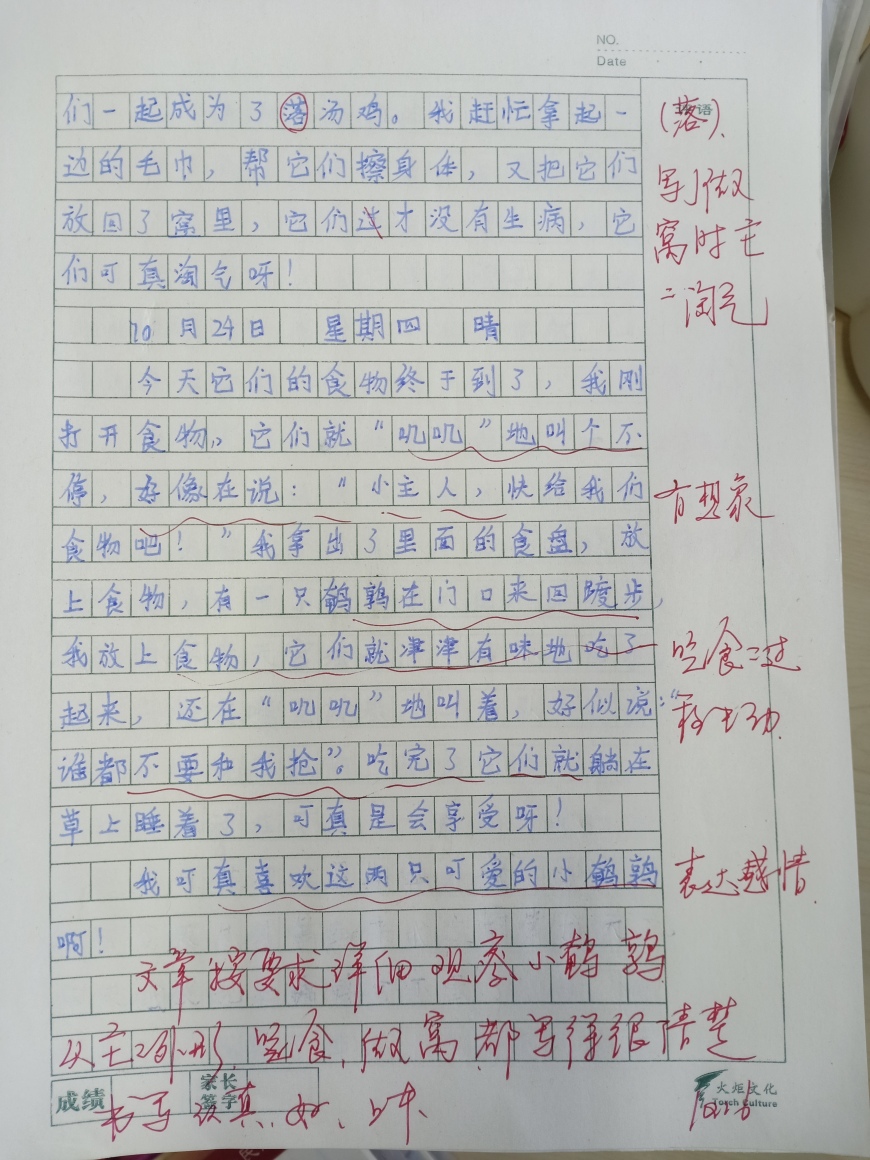 NO.
Date
们一起成为了落汤鸡。我赶忙拿起一
(落)
边的毛巾，帮它们擦身体，又把它们
写了做
放回了窝里，它们这才没有生病，它
窝时它
们可真淘气呀！
淘气
10月24日 星期四 晴
今天它们的食物终于到了，我刚
打开食物，它们就“叽叽”地叫个不
停，好像在说：“小主人，快给我们
有想象
食物吧！”我拿出了里面的食盘，放
上食物，有一只鹌鹑在门口来回踱步，
我放上食物，它们就津津有味地吃了
吃食
起来，还在“叽叽”地叫着，好似说：“
生动
谁都不要和我抢”。吃完了它们就躺在
草上睡着了，可真是会享受呀！
我可真喜欢这两只可爱的小鹌鹑
表达感情
啊！
文章按要求详细观察小鹌鹑
从它外形，吃食，做窝都写得很清楚
书写认真，好
成绩
家长
签字
火炬文化
Torch Culture